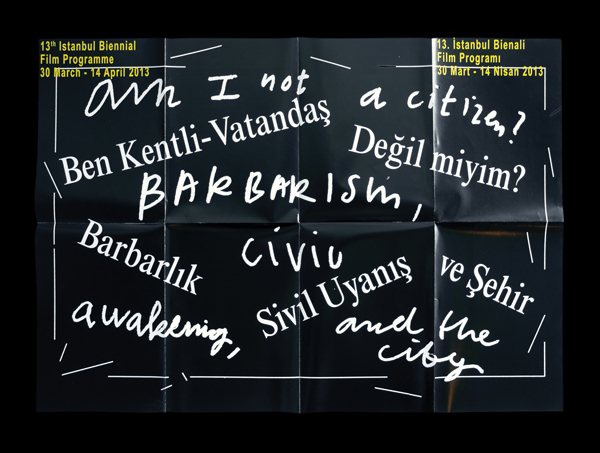 13th Istanbul Biennial
Film Programme
30 March - 14 April 2013
13. İstanbul Bienali
Film Programı
30 Mart - 14 Nisan 2013
am I not a citizen?
Ben Kentli-Vatandaş Değil miyim?
BARBARISM,
Barbarlık
civic
Sivil Uyanış
ve Şehir
awakening,
and the
city